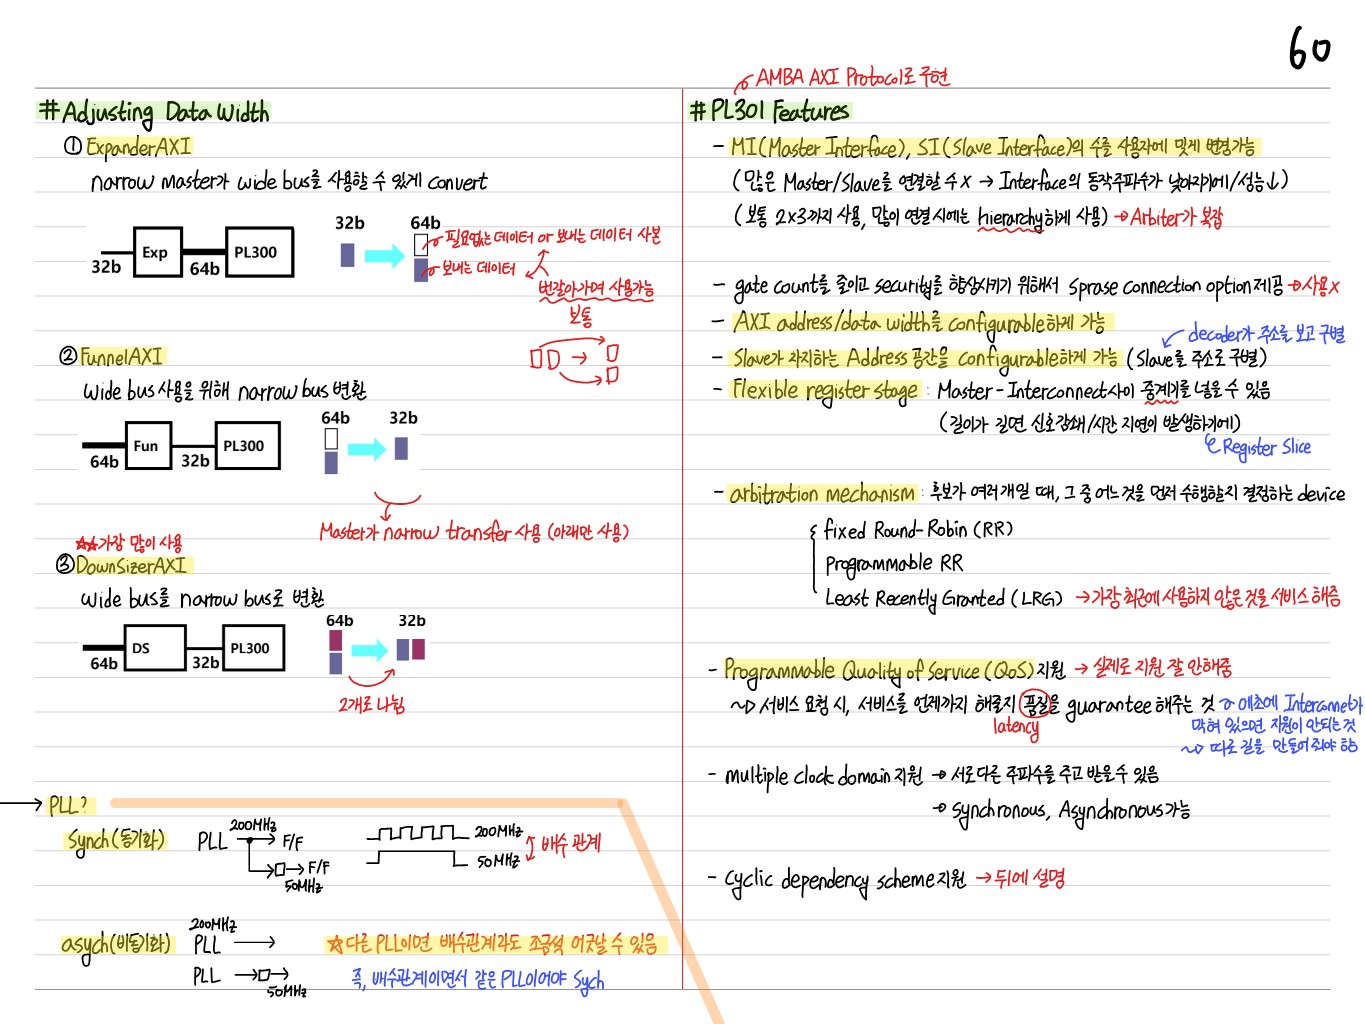 60
# Adjusting Data Width
① ExpanderAXI
narrow master가 wide bus를 사용할 수 있게 convert
32b
Exp
64b
PL300
32b
64b
필요없는 데이터 or 보내는 데이터 사본
보내는 데이터
번갈아가며 사용가능
보통
② FunnelAXI
wide bus 사용을 위해 narrow bus 변환
64b
Fun
32b
PL300
64b
32b
Master가 narrow transfer 사용 (아래만 사용)
☆☆가장 많이 사용
③ DownSizerAXI
wide bus를 narrow bus로 변환
64b
DS
32b
PL300
64b
32b
2개로 나뉨
→ PLL?
Synch(동기화)
PLL
200MHz
→ F/F
→ F/F
50MHz
200MHz
50MHz
배수 관계
asych(비동기화)
200MHz
PLL →
PLL → □ →
50MHz
☆다른 PLL이면 배수관계라도 조금씩 어긋날 수 있음
즉, 배수관계이면서 같은 PLL이어야 Sych
AMBA AXI Protocol로 구현
# PL301 Features
- MI(Master Interface), SI(Slave Interface)의 수를 사용자에 맞게 변경가능
(많은 Master/Slave를 연결할 수 X → Interface의 동작주파수가 낮아지기에/성능↓)
(보통 2x3까지 사용, 많이 연결시에는 hierarchy하게 사용) → Arbiter가 복잡
- gate count를 줄이고 security를 향상시키기 위해서 sprase connection option 제공 → 사용X
- AXI address/data width를 configurable하게 가능
decoder가 주소를 보고 구별
- Slave가 차지하는 Address 공간을 configurable하게 가능 (Slave를 주소로 구별)
- Flexible register stage : Master - Interconnect사이 중계기를 넣을 수 있음
(길이가 길면 신호감쇄/시간 지연이 발생하기에)
Register Slice
- arbitration mechanism : 후보가 여러개일 때, 그 중 어느것을 먼저 수행할지 결정하는 device
fixed Round-Robin (RR)
Programmable RR
Least Recently Granted (LRG) → 가장 최근에 사용하지 않은 것을 서비스 해줌
- Programmable Quality of Service (QoS) 지원 → 실제로 지원 잘 안해줌
서비스 요청 시, 서비스를 언제까지 해줄지 품질을 guarantee 해주는 것
latency
애초에 Interconnet가
막혀 있으면 지원이 안되는 것
따로 길을 만들어줘야 함
- multiple clock domain 지원 → 서로다른 주파수를 주고 받을수 있음
→ Synchronous, Asynchronous가능
- cyclic dependency scheme 지원 → 뒤에 설명